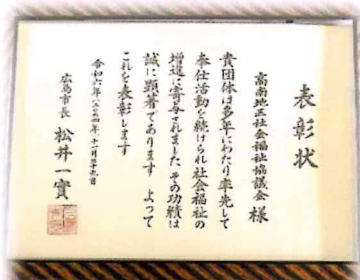 表彰状
高南地区社会福祉協議会 様
貴団体は多年にわたり率先して
奉仕活動を続けられ社会福祉の
増進に寄与されました その功績は
誠に顕著であります よって
これを表彰します
令和六年(二〇二四年)十一月二十九日
広島市長 松井一實